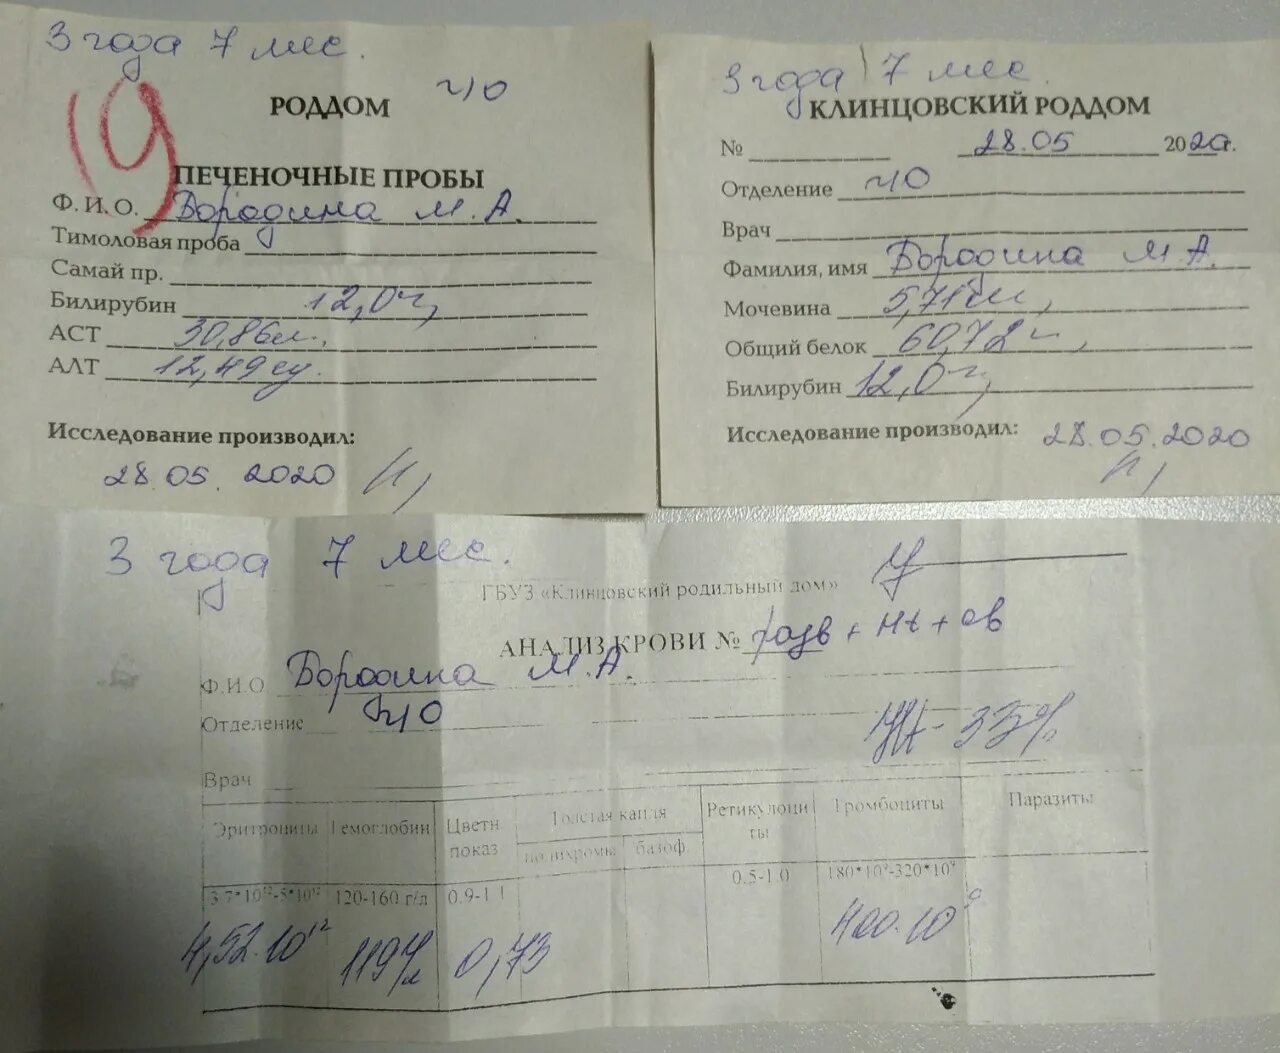 3 года 7 мес.
РОДДОМ
ПЕЧЕНОЧНЫЕ ПРОБЫ
Ф. И. О. Бородина М. А.
Тимоловая проба
Самай пр.
Билирубин 12,0
АСТ 30,86
АЛТ 12,49
Исследование производил:
28.05.2020
3 года 7 мес.
КЛИНЦОВСКИЙ РОДДОМ
№ 28.05 2020г.
Отделение
Врач
Фамилия, имя Бородина М. А.
Мочевина 5,71
Общий белок 60,72
Билирубин 12,0
Исследование производил: 28.05.2020
3 года 7 мес.
ГБУЗ «Клинцовский родильный дом»
АНАЛИЗ КРОВИ № разв + Ht + св
Ф.И.О Бородина М. А.
Отделение
Ht - 33%
Врач
Эритроциты Гемоглобин Цветн показ Толстая капля Ретикулоци ты Тромбоциты Паразиты
полихромы базоф.
3.7*10¹²-5*10¹² 120-160 г/л 0.9-1.1 0.5-1.0 180*10⁹-320*10⁹
4,52·10¹² 119 г/л 0,73 400·10⁹